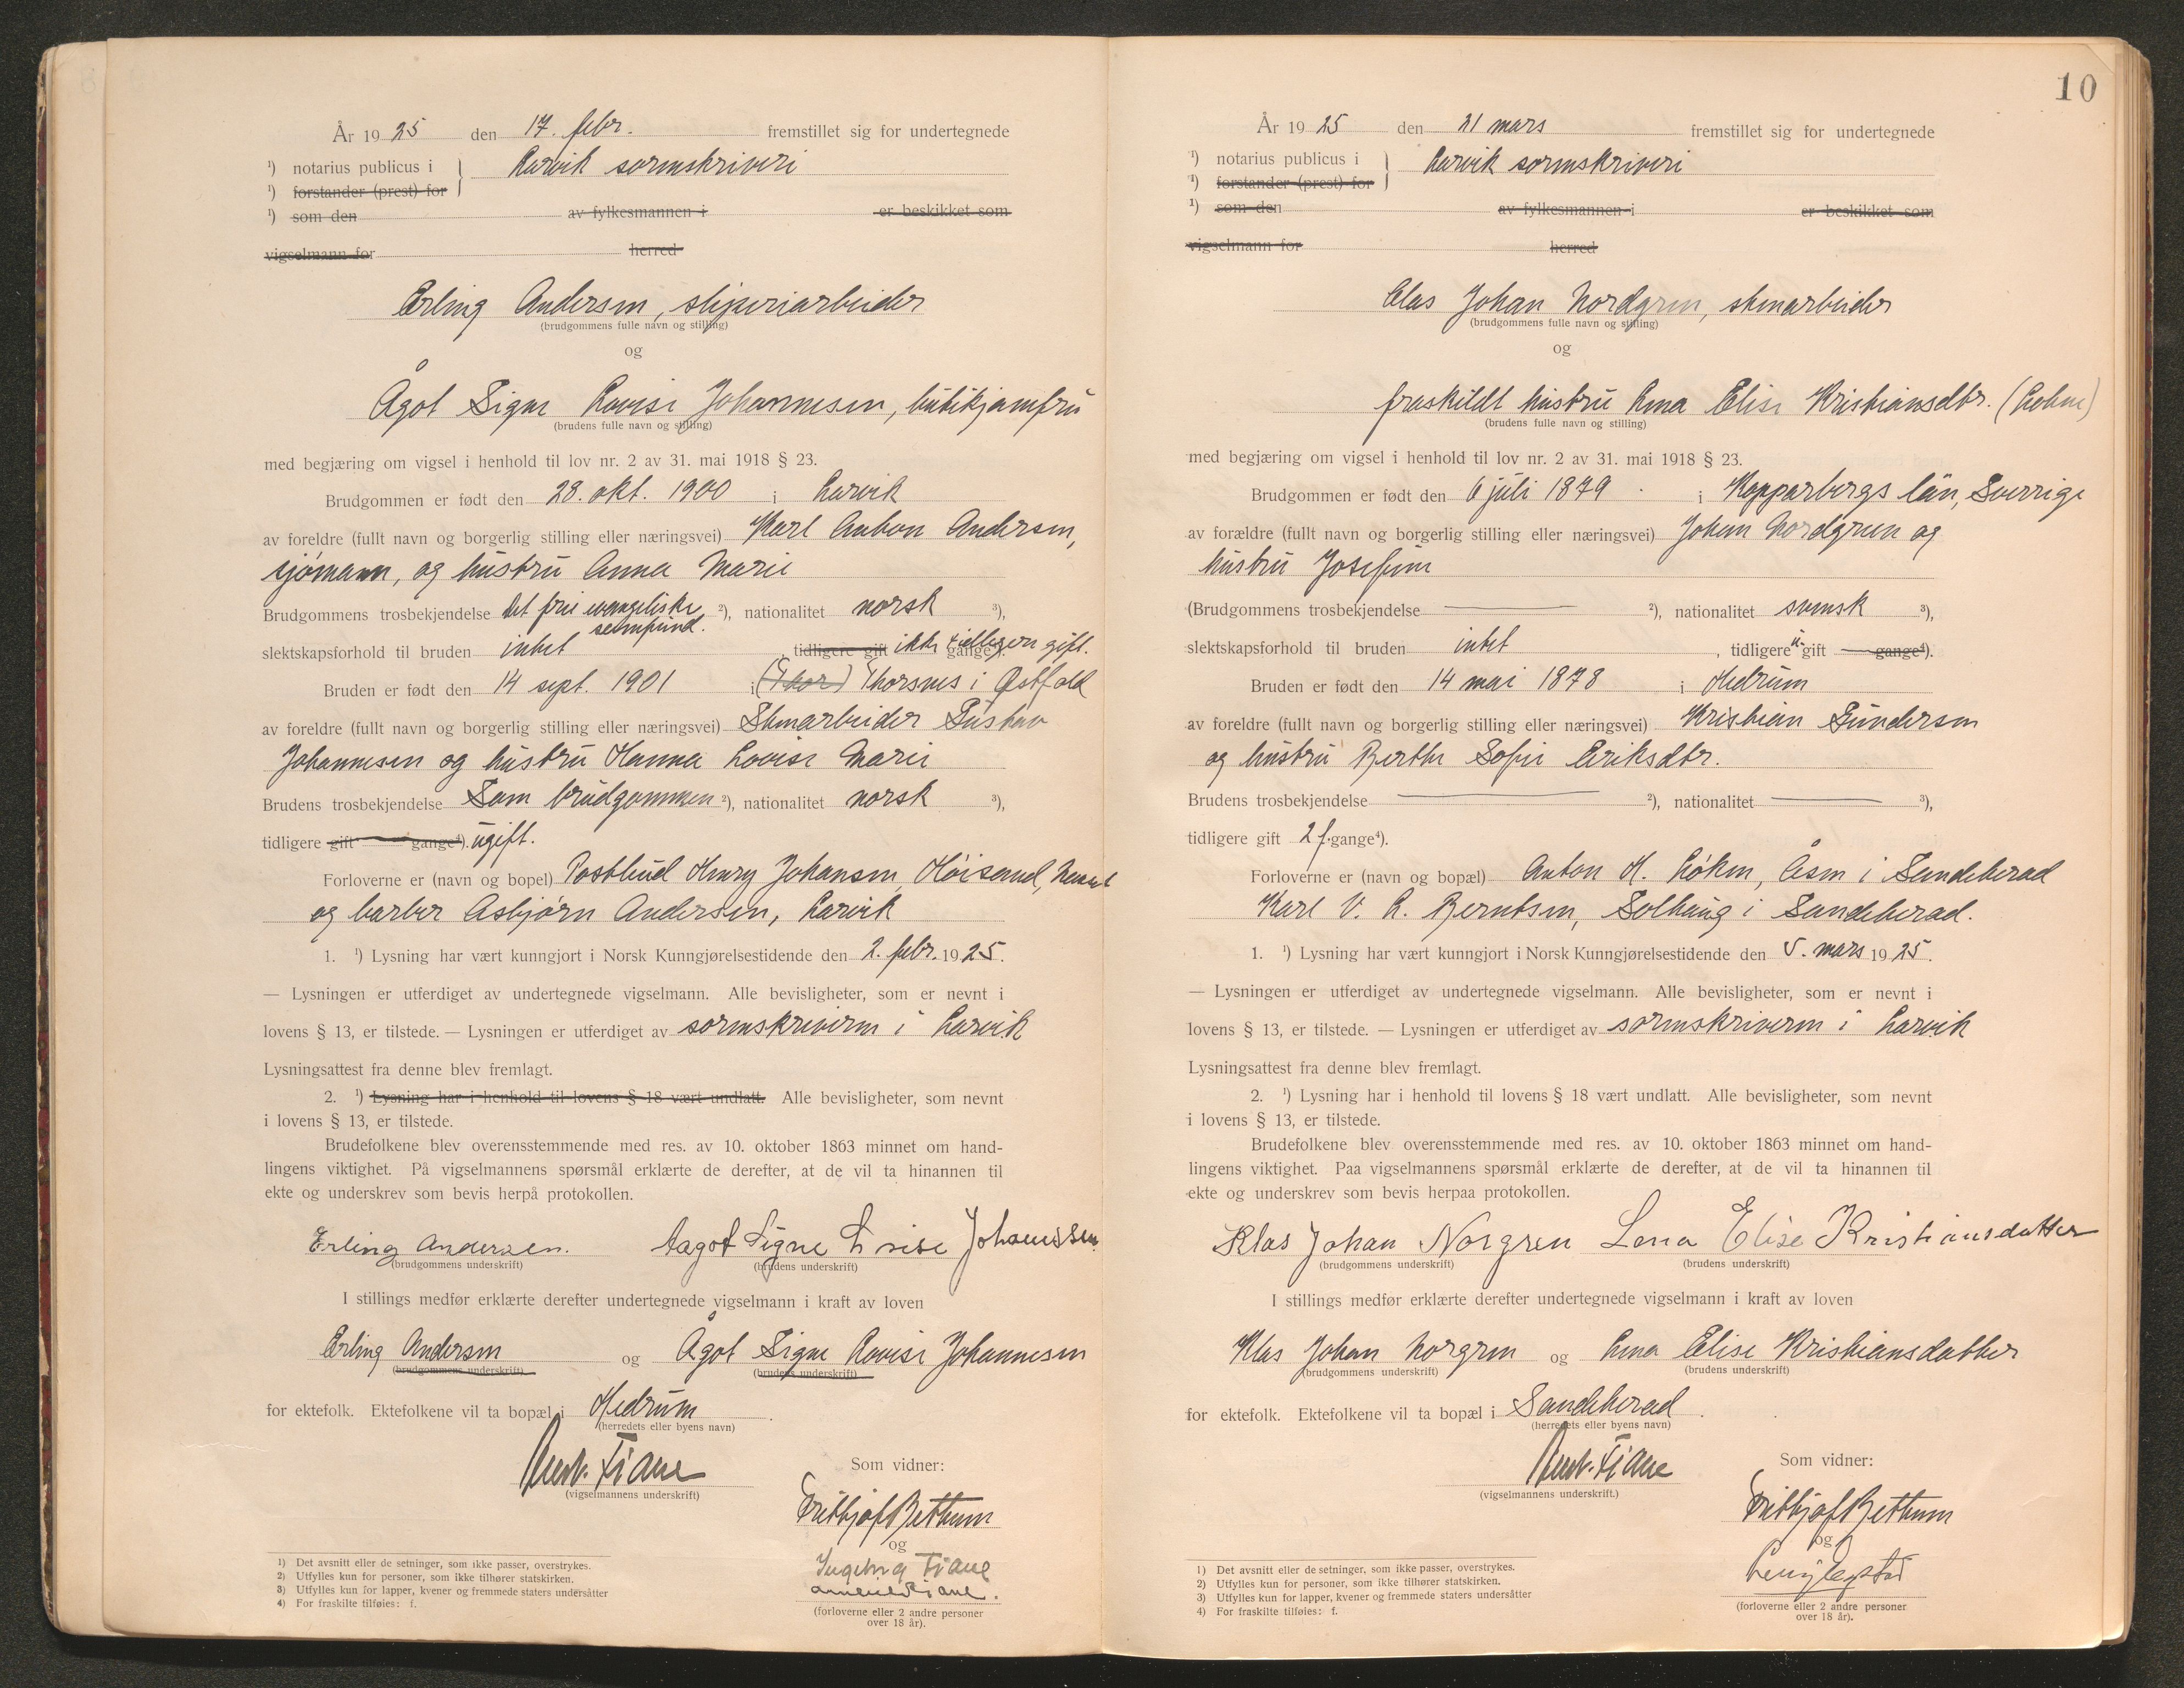 År 1925 den 17. febr. fremstillet sig for undertegnede
¹) notarius publicus i } Larvik sorenskriveri
¹) forstander (prest) for
¹) som den av fylkesmannen i er beskikket som
vigselmann for herred
Erling Andersen, sliperiarbeider
(brudgommens fulle navn og stilling)
og
Ågot Signe Lovise Johannesen, butikjomfru
(brudens fulle navn og stilling)
med begjæring om vigsel i henhold til lov nr. 2 av 31. mai 1918 § 23.
Brudgommen er født den 28. okt. 1900 i Larvik
av foreldre (fullt navn og borgerlig stilling eller næringsvei) Karl Anton Andersen,
sjømann, og hustru Anna Marie
Brudgommens trosbekjendelse Det frie evangeliske ²), nationalitet norsk ³),
samfund.
slektskapsforhold til bruden intet , tidligere gift ikke tidligere gift. gange⁴).
Bruden er født den 14 sept. 1901 i (Thor) Thorsnes i Østfold
av foreldre (fullt navn og borgerlig stilling eller næringsvei) Stenarbeider Gustav
Johannesen og hustru Hanna Lovise Marie
Brudens trosbekjendelse Som brudgommen ²), nationalitet norsk ³),
tidligere gift gange⁴). ugift.
Forloverne er (navn og bopel) Postbud Henry Johansen, Høisand,
og barber Asbjørn Andersen, Larvik
1. ¹) Lysning har vært kunngjort i Norsk Kunngjørelsestidende den 2. febr. 1925.
— Lysningen er utferdiget av undertegnede vigselmann. Alle bevisligheter, som er nevnt i
lovens § 13, er tilstede. — Lysningen er utferdiget av sorenskriveren i Larvik
Lysningsattest fra denne blev fremlagt.
2. ¹) Lysning har i henhold til lovens § 18 vært undlatt. Alle bevisligheter, som nevnt
i lovens § 13, er tilstede.
Brudefolkene blev overensstemmende med res. av 10. oktober 1863 minnet om hand-
lingens viktighet. På vigselmannens spørsmål erklærte de derefter, at de vil ta hinannen til
ekte og underskrev som bevis herpå protokollen.
Erling Andersen. Aagot Signe Lovise Johanessen.
(brudgommens underskrift) (brudens underskrift)
I stillings medfør erklærte derefter undertegnede vigselmann i kraft av loven
Erling Andersen og Ågot Signe Lovise Johannesen
(brudgommens underskrift) (brudens underskrift)
for ektefolk. Ektefolkene vil ta bopæl i Hedrum .
(herredets eller byens navn)
Fiane
(vigselmannens underskrift)
Som vidner:
Frithjof Bettum
og
Ingeborg Fiane
Fiane.
(forloverne eller 2 andre personer
over 18 år).
1) Det avsnitt eller de setninger, som ikke passer, overstrykes.
2) Utfylles kun for personer, som ikke tilhører statskirken.
3) Utfylles kun for lapper, kvener og fremmede staters undersåtter
4) For fraskilte tilføies: f.
10
År 1925 den 21 mars fremstillet sig for undertegnede
¹) notarius publicus i } Larvik sorenskriveri
¹) forstander (prest) for
¹) som den av fylkesmannen i er beskikket som
vigselmann for herred
Clas Johan Nordgren, stenarbeider
(brudgommens fulle navn og stilling)
og
fraskildt hustru Lena Elise Kristiansdtr.
(brudens fulle navn og stilling)
med begjæring om vigsel i henhold til lov nr. 2 av 31. mai 1918 § 23.
Brudgommen er født den 6 juli 1879 i Kopparbergs län, Sverrige
av forældre (fullt navn og borgerlig stilling eller næringsvei) Johan Nordgren og
hustru Josefine
(Brudgommens trosbekjendelse — ²), nationalitet svensk ³),
slektskapsforhold til bruden intet , tidligere u-gift gange⁴).
Bruden er født den 14 mai 1878 i Hedrum
av foreldre (fullt navn og borgerlig stilling eller næringsvei) Kristian Gundersen
og hustru Berthe Sofie Eriksdtr.
Brudens trosbekjendelse — ²), nationalitet — ³),
tidligere gift 2 f. gange⁴).
Forloverne er (navn og bopæl) Anton H. Løken, Åsen i Sandeherad
Karl V. L. Berntsen, Solhaug i Sandeherad.
1. ¹) Lysning har vært kunngjort i Norsk Kunngjørelsestidende den 5. mars 1925.
— Lysningen er utferdiget av undertegnede vigselmann. Alle bevisligheter, som er nevnt i
lovens § 13, er tilstede. — Lysningen er utferdiget av sorenskriveren i Larvik
Lysningsattest fra denne blev fremlagt.
2. ¹) Lysning har i henhold til lovens § 18 vært undlatt. Alle bevisligheter, som nevnt
i lovens § 13, er tilstede.
Brudefolkene blev overensstemmende med res. av 10. oktober 1863 minnet om hand-
lingens viktighet. Paa vigselmannens spørsmål erklærte de derefter, at de vil ta hinannen til
ekte og underskrev som bevis herpaa protokollen.
Klas Johan Norgren Lena Elise Kristiansdatter
(brudgommens underskrift) (brudens underskrift)
I stillings medfør erklærte derefter undertegnede vigselmann i kraft av loven
Klas Johan Norgren og Lena Elise Kristiansdatter
(brudgommens underskrift) (brudens underskrift)
for ektefolk. Ektefolkene vil ta bopæl i Sandeherad .
(herredets eller byens navn)
Fiane
(vigselmannens underskrift.)
Som vidner:
Frithjof Bettum
og
(forloverne eller 2 andre personer
over 18 år).
1) Det avsnitt eller de setninger, som ikke passer, overstrykes.
2) Utfylles kun for personer, som ikke tilhører statskirken.
3) Utfylles kun for lapper, kvener og fremmede staters undersåtter
4) For fraskilte tilføies: f.